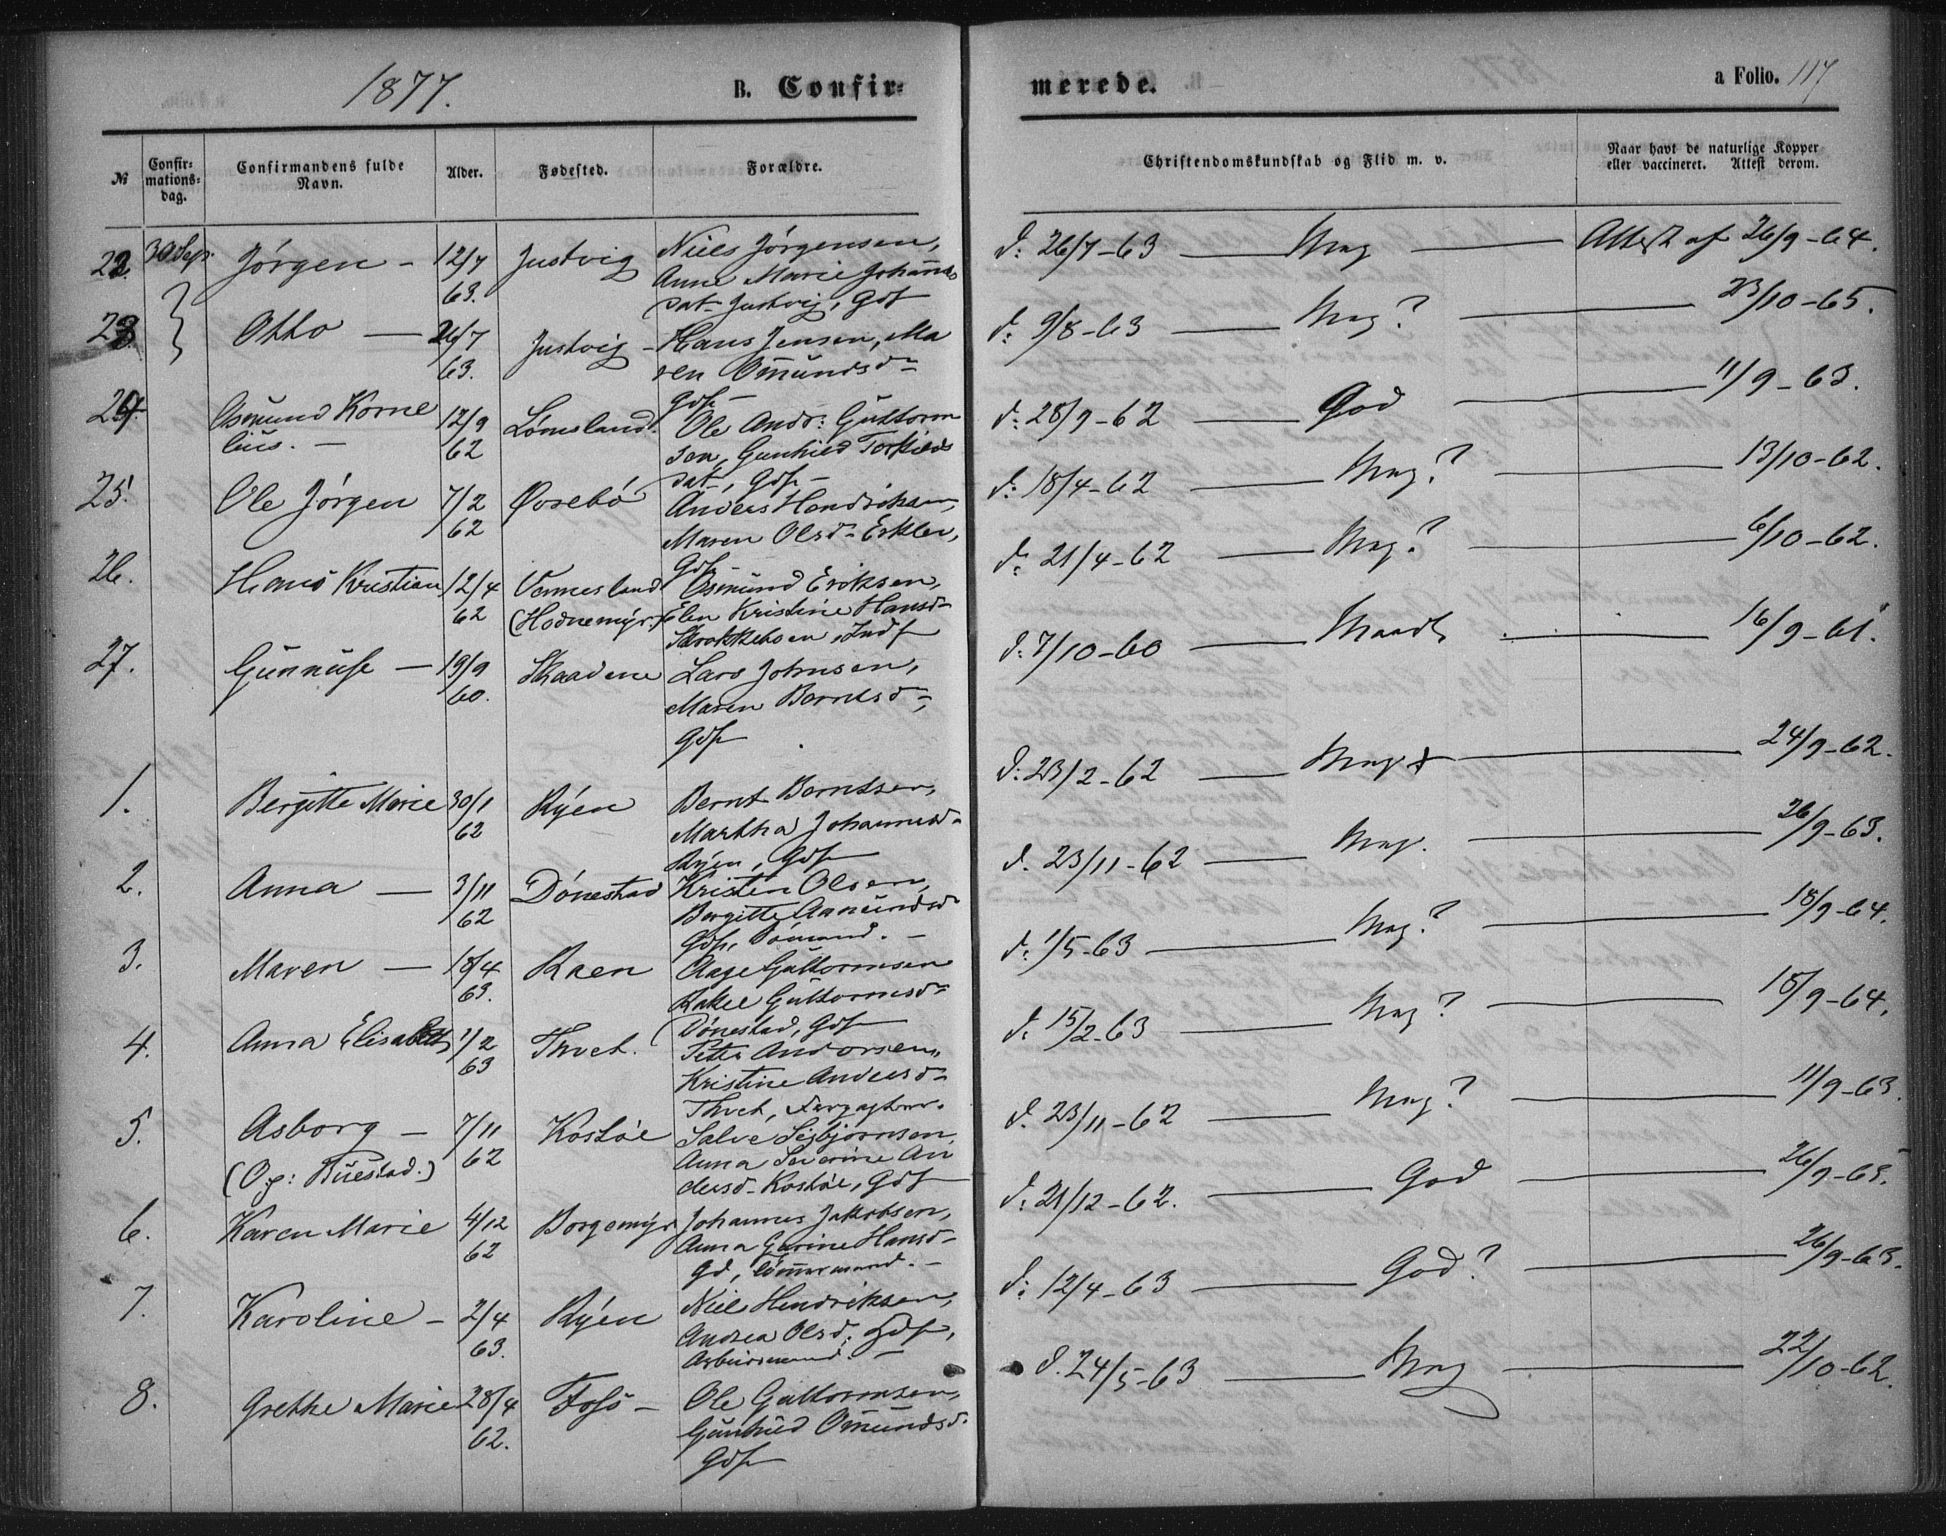 1877.
B. Confir=
merede.
a Folio. 117
№
Confir=
mations=
dag.
Confirmandens fulde
Navn.
Alder.
Fødested.
Forældre.
Christendomskundskab og Flid m. v.
Naar havt de naturlige Kopper
eller vaccineret. Attest derom.
22. 30 Sep. Jørgen – 12/7 63. Justvig
Niels Jørgensen,
Anne Marie Johans
dat. Justvig, Gdf
d: 26/7-63 — Mag — Attest af 26/9-64.
23 Otto — 26/7 63. Justvig –
Hans Jensen, Ma
ren Omundsd–
Gdf –
d: 9/8-63 — Mag? — 23/10-65.
24. Osmund Korne
lius. – 12/9 62 Lømsland.
Ole Ands: Guttorm
sen, Gunhild Torkilds
dat, Gdf –
d: 28/9-62 — God — 11/9-63.
25. Ole Jørgen 7/2 62 Øvsebø
Anders Hendriksen,
Maren Olsd–
Gdf –
d: 18/4-62 — Mag? — 13/10-62.
26. Hans Kristian 12/4 62 Vennesland
(Hodnemyr)
Osmund Eriksen,
Elen Kristine Hansd–
Indf
d: 21/4-62 — Mag? — 6/10-62.
27. Gunnuf — 19/9 60. Skaadene
Lars Johnsen,
Maren Berntsd–,
Gdf
d: 7/10-60 — Maadl — 16/9-61.
1. Bergitte Marie 30/1 62 Ryen
Bernt Berntsen,
Martha Johannesd–
Ryen, Gdf
d: 23/2-62 — Mag — 24/9-62.
2. Anna — 3/11 62 Dønestad
Kristen Olsen,
Bergitte Aanundsd–
Gdf, Sømand. –
d. 23/11-62 — Mag. — 26/9-63.
3. Maren — 18/4 63. Raen
Aage Guttormsen
Rakel Guttormsd–
Dønestad, Gdf
d: 1/5-63 — Mag? — 18/9-64.
4. Anna Elisabeth 1/2 63 Thvet.
Petter Andersen,
Kristine Andersd–
Thvet,
d: 15/2-63 — Mag? — 18/9-64.
5. Asborg – 7/11 62 Kostøe
(Op: Ruestad.)
Salve Seibjørnsen,
Anna Severine An
dersd– Kostøe, Gdf
d. 23/11-62 — Mag? — 11/9-63.
6. Karen Marie 4/12 62 Borgemyr
Johannes Jakobsen,
Anna Gurine Hansd–
Gd, Tømmermand. –
d: 21/12-62. — God — 26/9-65.
7. Karoline – 2/4 63. Ryen
Niel Hendriksen,
Andrea Olsd. Gdf,
Arbeidsmand. –
d: 12/4-63 — God? — 26/9-63.
8. Grethe Marie 28/4 62. Foss –
Ole Guttormsen,
Gunhild Omundsd.
Gdf
d. 24/5-63 — Mag — 22/10-62.